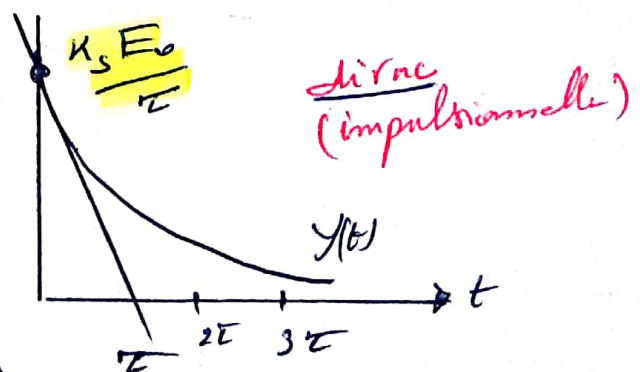 K_s E_0
τ
dirac
(impulsionnelle)
y(t)
t
τ
2τ
3τ